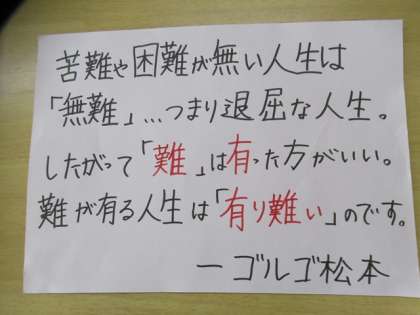 苦難や困難が無い人生は
「無難」…つまり退屈な人生。
したがって「難」は有った方がいい。
難が有る人生は「有り難い」のです。
ーゴルゴ松本